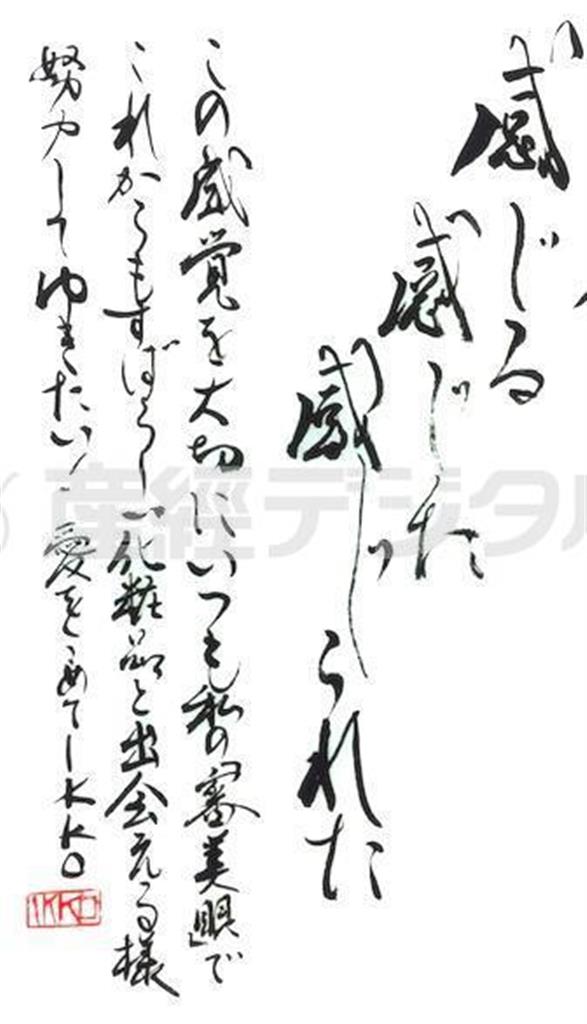 感じる
感じた
感じられた
この感覚を大切にいつも私の「審美眼」で
これからもすばらしい化粧品と出会える様
努力してゆきたい!愛をこめてIKKO
IKKO
産経デジタル